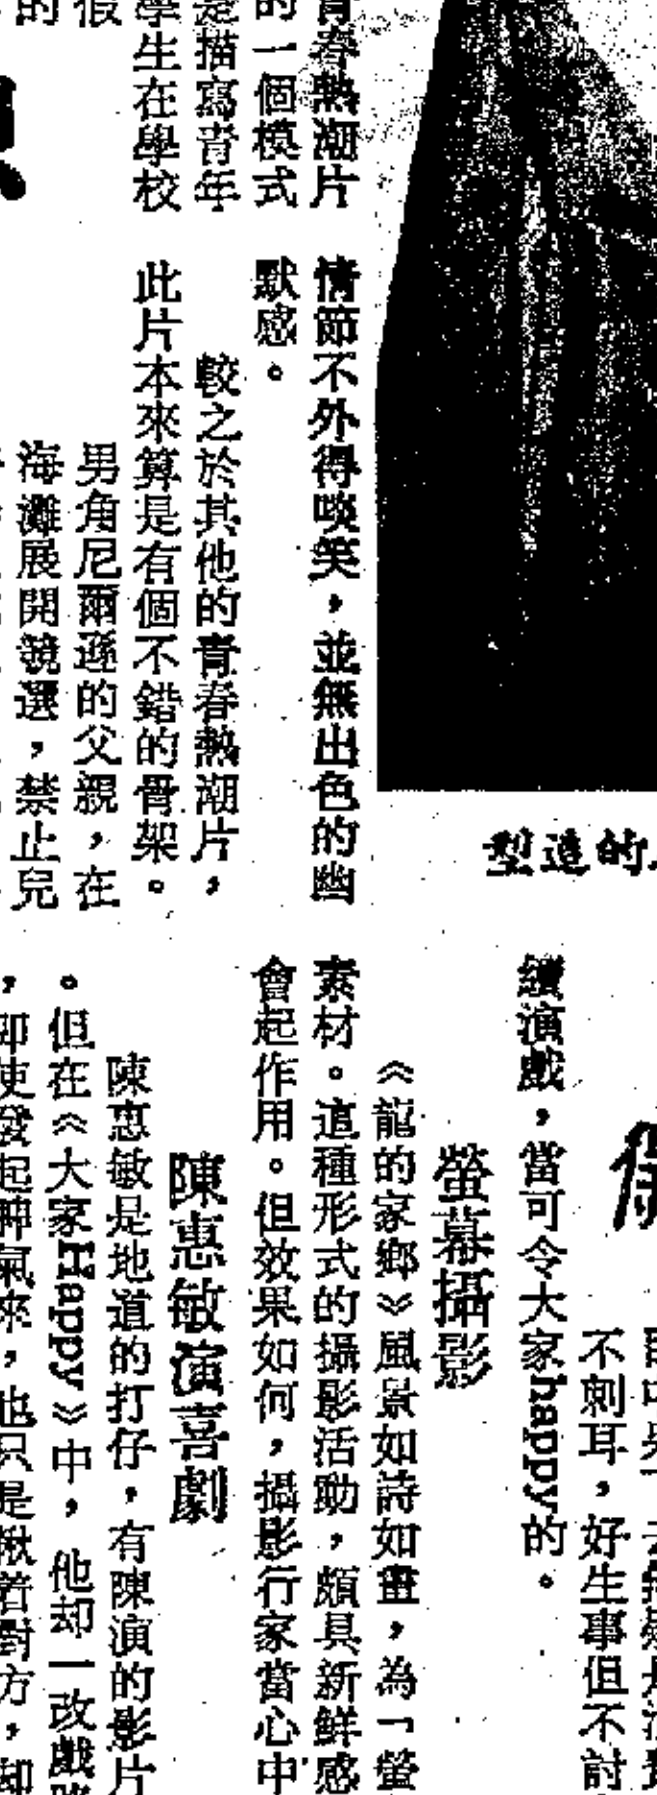 青春熱潮片
的一個模式
是描寫青年
學生在學校
假
的
情節不外得啖笑，並無出色的幽
默感。
較之於其他的青春熱潮片，
此片本來算是有個不錯的骨架。
男角尼爾遜的父親，在
海灘展開競選，禁止兒
型造的
不刺耳，好生事但不討
續演戲，當可令大家happy的。
螢幕攝影
《龍的家鄉》風景如詩如畫，為「螢
素材。這種形式的攝影活動，頗具新鮮感
會起作用。但效果如何，攝影行家當心中
陳惠敏演喜劇
陳惠敏是地道的打仔，有陳演的影片
。但在《大家Happy》中，他却一改戲路
，即使發起神氣來，也只是揪着對方，却